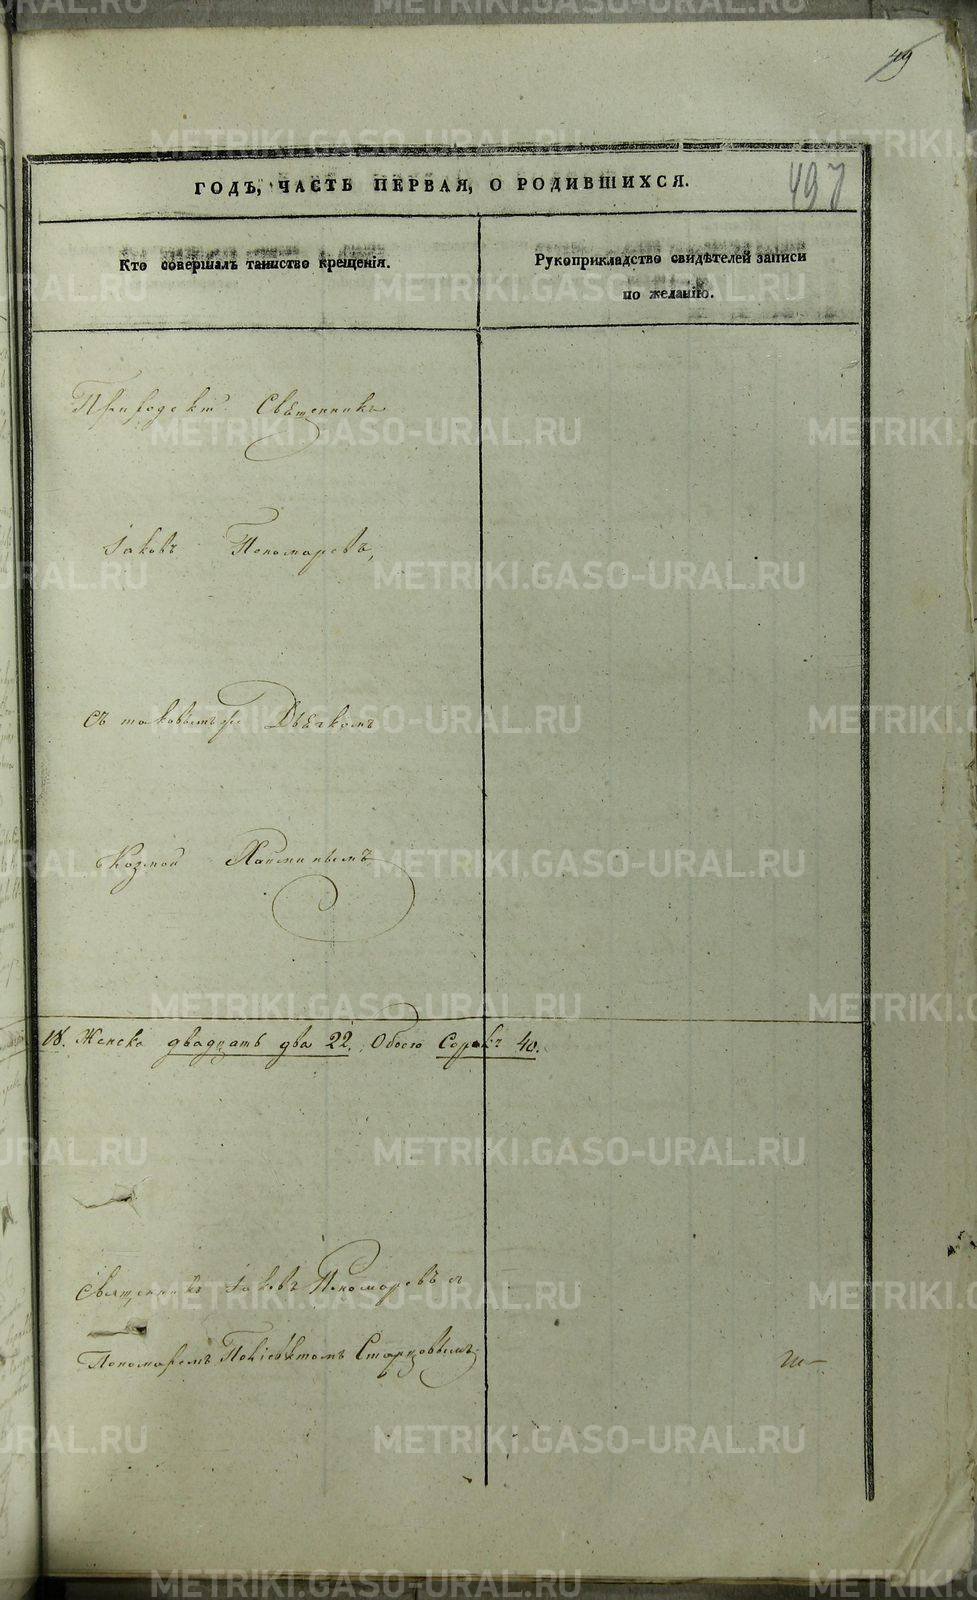 49
497
ГОДЪ, ЧАСТЬ ПЕРВАЯ, О РОДИВШИХСЯ.
Кто совершалъ таинство крещенія.
Рукоприкладство свидѣтелей записи
по желанію.
Священникъ
Іаковъ Пономаревъ,
съ таковымъ же Дьячкомъ
Козмой
18. Женска двадцать два 22. Обоего Сорокъ 40.
Священникъ Іаковъ Пономаревъ съ
Пономаремъ Старцовымъ
METRIKI.GASO-URAL.RU